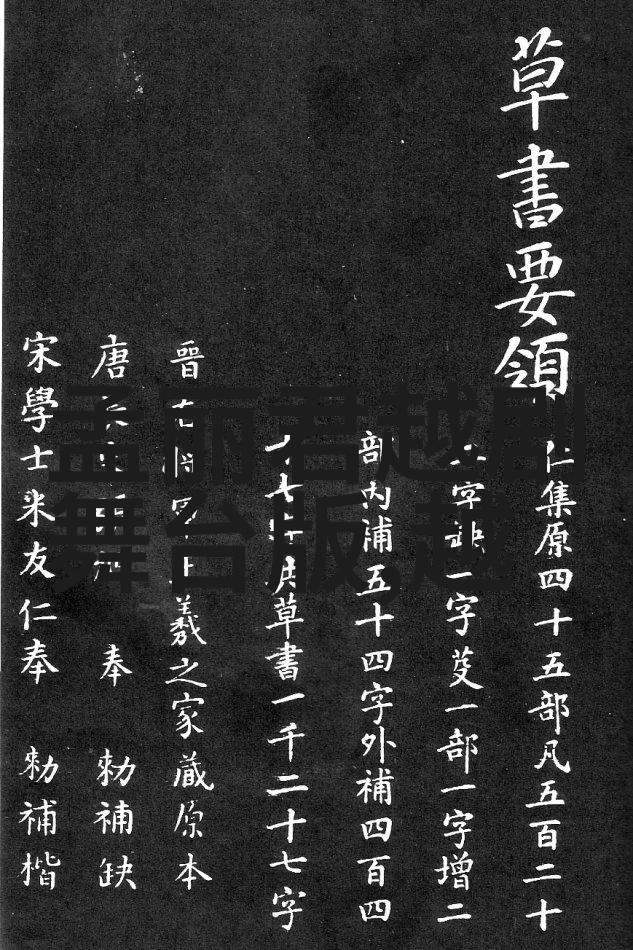 草書要領
仁集原四十五部凡五百二十
字缺一字芟一部一字增二
部內補五十四字外補四百四
十七字草書一千二十七字
晉右將軍王羲之家藏原本
唐 奉 勅補缺
宋學士米友仁奉 勅補楷
孟丽君越剧
舞台版,越